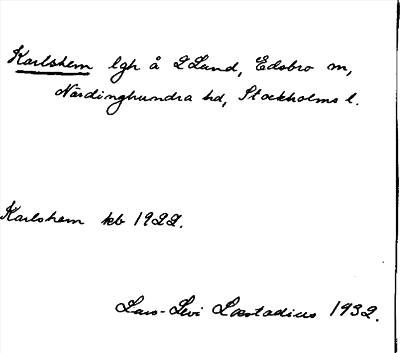 Karlshem lgh å 2 Lund, Edsbro sn,
Närdinghundra hd, Stockholms l.
Karlshem kb 1922.
Lars-Levi Læstadius 1932.